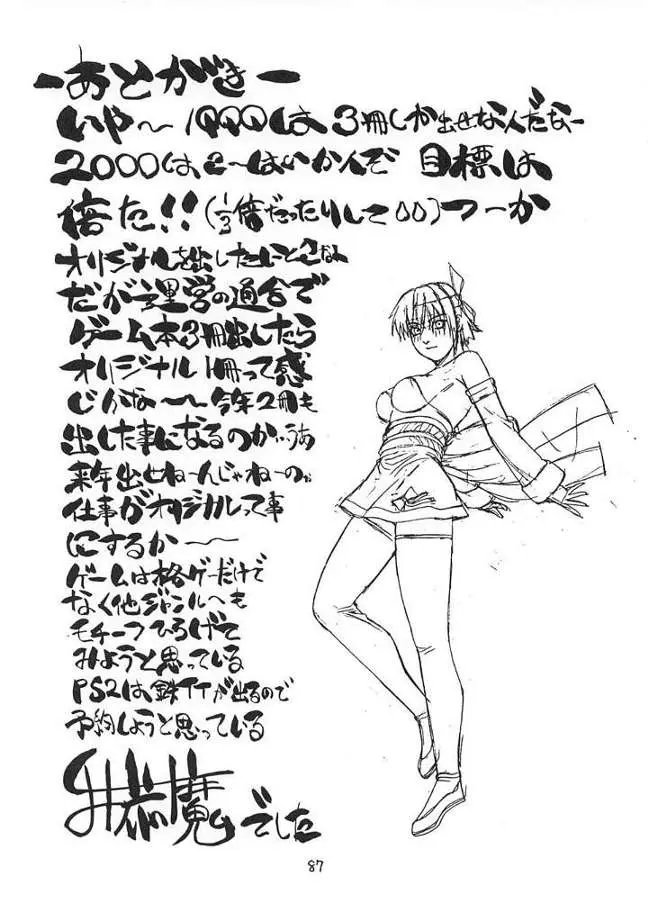 ーあとがきー
いや〜1999は3冊しか出せなんだなー
2000は2〜はいかんぞ 目標は
倍だ!!(1/3倍だったりして○○)つーか
オリジナルを出したいとこな
だが運営の都合で
ゲーム本3冊出したら
オリジナル1冊って感
じかな〜今年2冊も
出した事になるのか…うあ
来年出せねーんじゃねーの
仕事がオリジナルって事
にするかー
ゲームは格ゲーだけで
なく他ジャンルへも
モチーフひろげて
みようと思っている
PS2は鉄TTが出るので
予約しようと思っている
でした
87